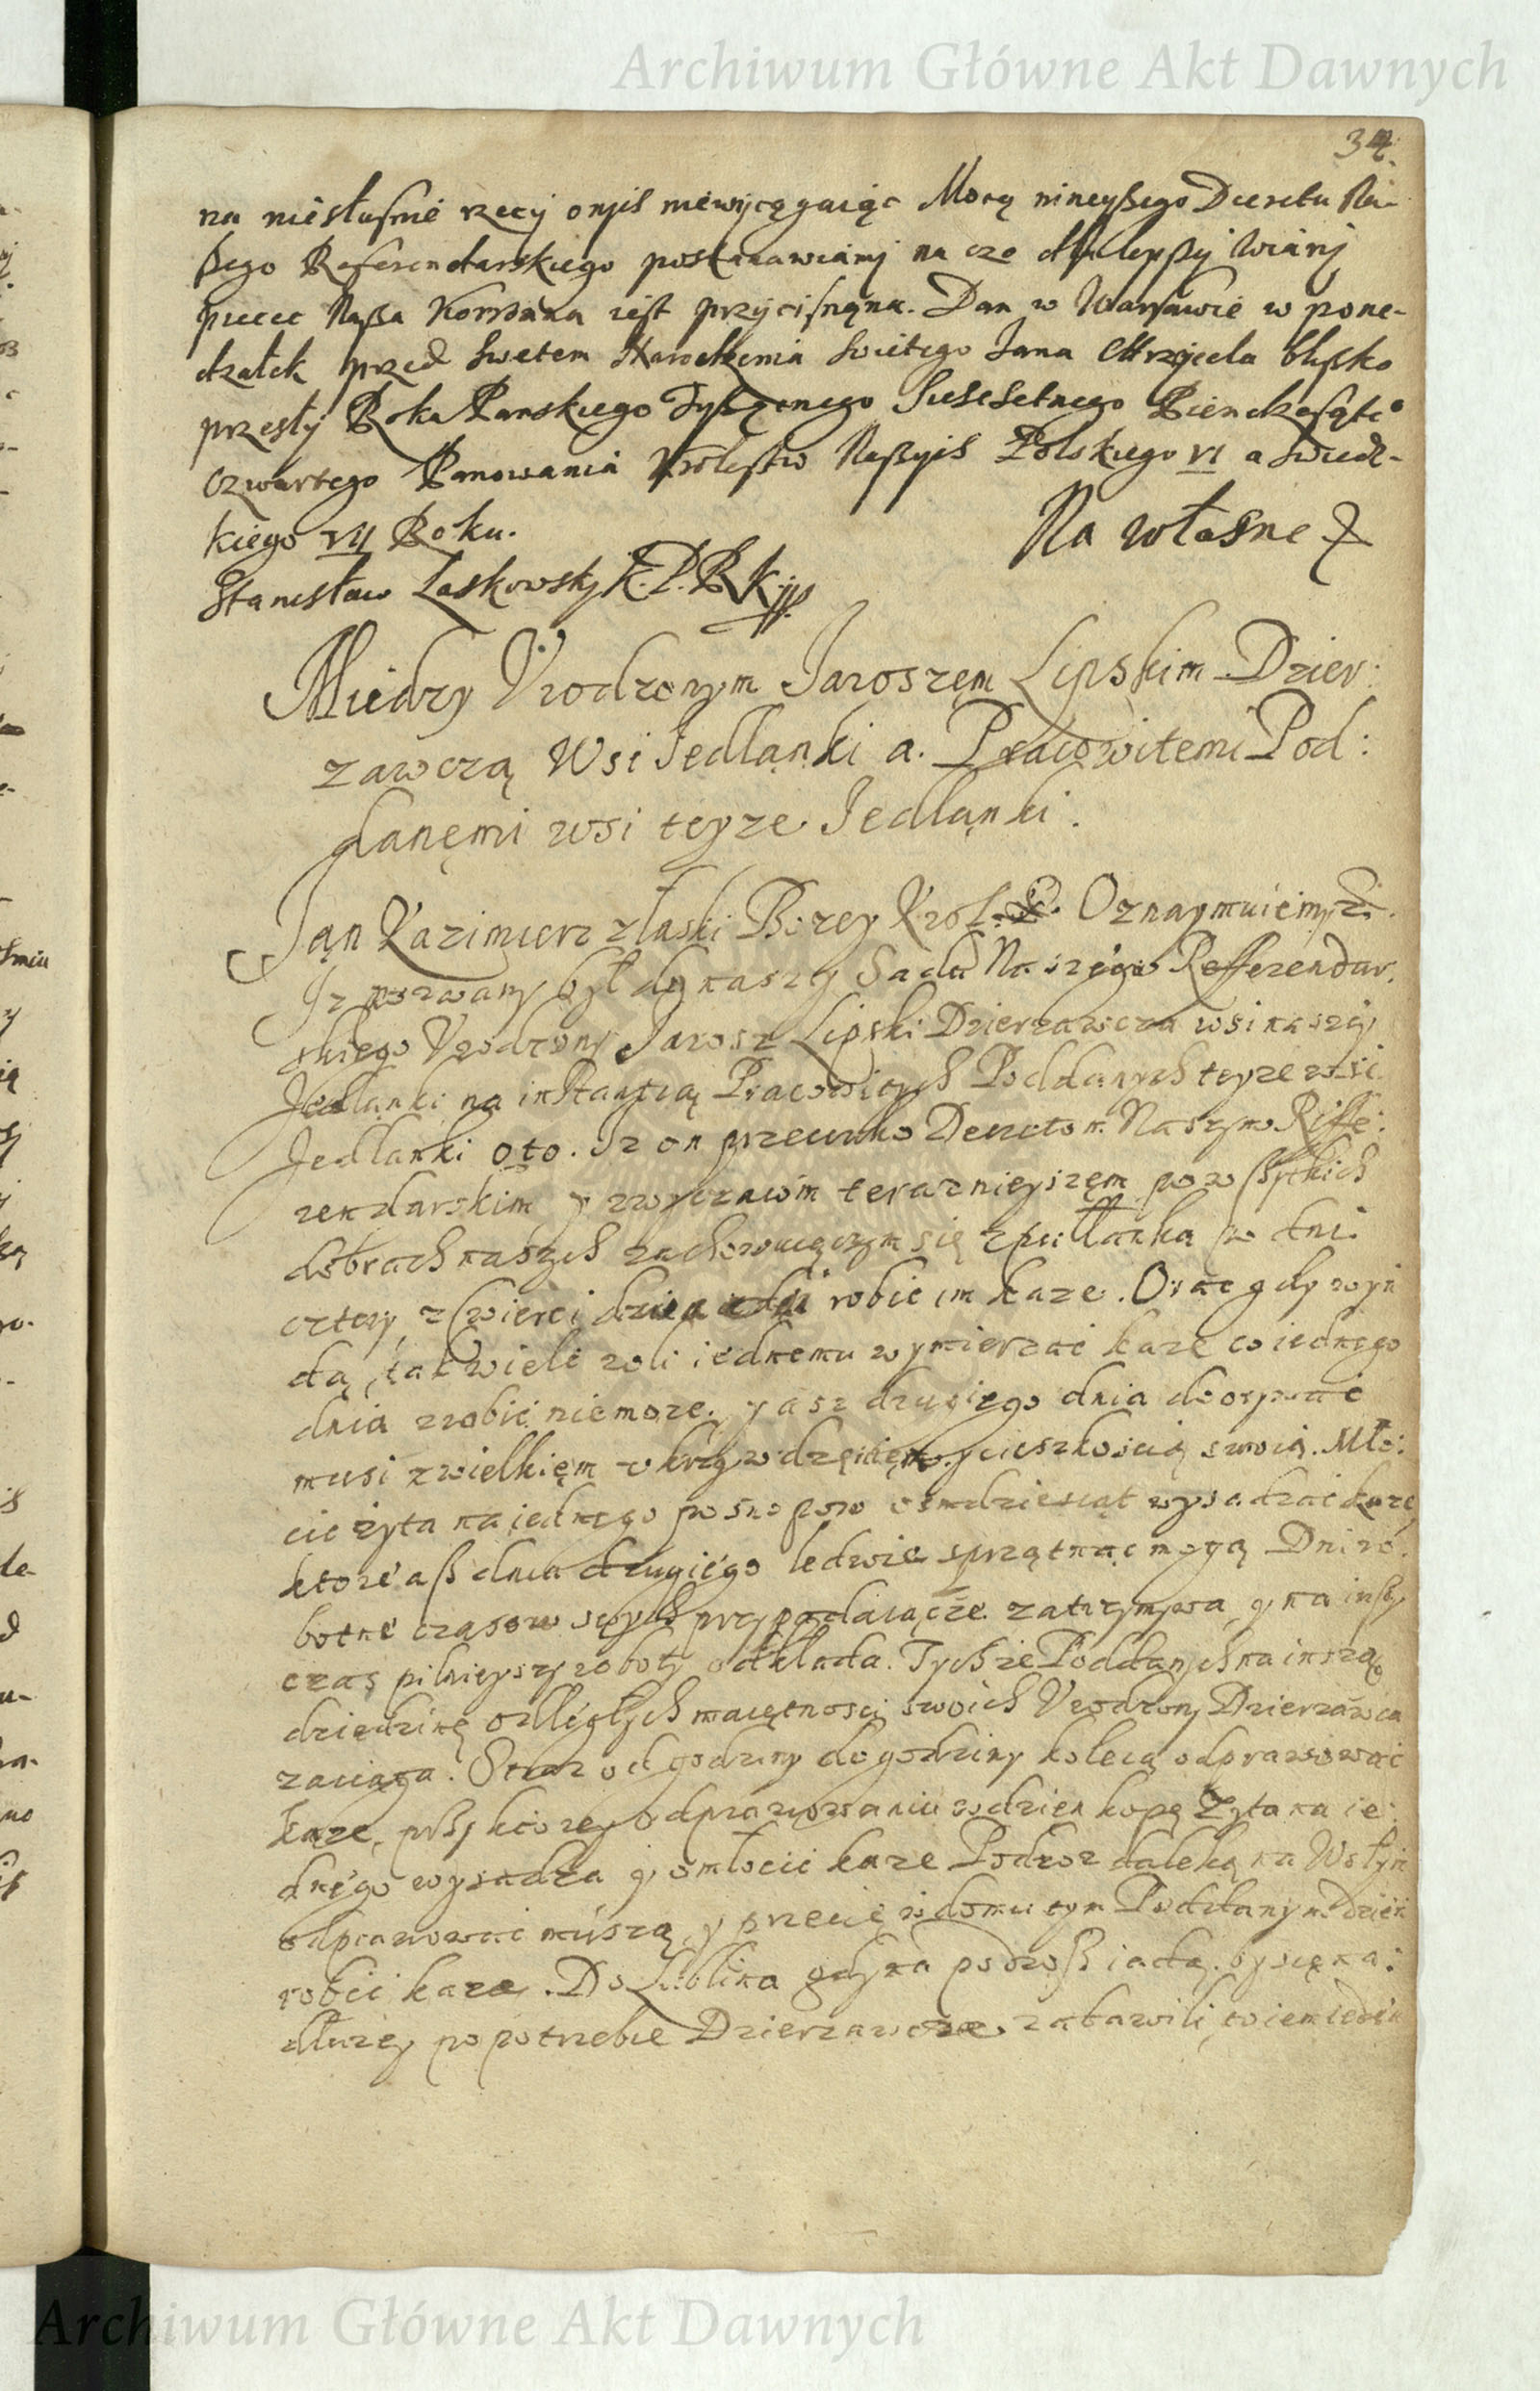 Archiwum Główne Akt Dawnych
34.
na niesłusnie rzeczy onyis niewyciągaiąc Mocą ninieyßego Decretu Na-
ßego Referendarskiego postanawiamy na czo dla lepßy wiary
piecec Naßa Koronna iest przycisnąna. Dan w Warsawie w pone-
dzałek przed Swetem Narodzenia Swietego Jana Chrzciela blisko
przesły Roku Panskiego Tysącnego Sescsetnego Piendzesąte°
czwartego Panowania Królestw Naßyis Polskiego VI a Swedz-
kiego VII Roku.
Na własne
Stanisław Laskowsky K. P. R K
Miedzy Vrodzonym Jaroszem Lipskim Dzier:
zawczą Wsi Jedlanki a. Pracowitemi Pod:
danęmi wsi teyze Jedlanki.
Jąn Kazimierz z łaski Bozey Krol. Oznaymuiemy
Iz pozwany był do naszey Sadu Naszego Refferendar.
skiego Vrodzony Jarosz Lipski Dzierzawcza wsi naszey
Jedlanki na instantią Pracowitych Poddanych teyze wsi
Jedlanki oto. Iz on przeciwko Decretom Naszym Reffe:
rendarskim y zwyczaiom teraznieyszęm po wßytkich
dobrach naszych zachowuiączym się z pułłanka w dni
cztery, z cwierci dzien robic im kaze. Orac gdy wyn
dą, tak wiele roli iednemu wymierzac kaze co iednego
dnia zrobic niemoze. y asz drugiego dnia doorywac
musi z wielkięm vkrzywdzęniem y cieszkoscią swoią. Mło:
cic zyta na iednego po snopow osmdziesiąt wysadzac kaze,
ktore aß dnia drugiego ledwie sprzątnąc mogą Dni ro:
botne czasow swych przypadaiącze zatrzymywa, y na inßy
czas pilnieyszy roboty odkłada. Tychze Poddanych na inszą
dziedzinę odległych maiętnosci swoich Vrodzony Dzierzawca
zaciąga. Straz od godziny do godziny koleią odprawowac
kaze, przy ktorey odprawowaniu w dzien kopę Zyta na ie:
dnego wysadza y omłocic kaze Podroz daleką na Wołyn
odprawowac muszą, y przecię w domu tym Poddanym dzien
robic kaze. Do Lublina gdy na podroß iadą. by się na:
dłuzey po potrzebie Dzierzawcze zabawili,
Archiwum Główne Akt Dawnych